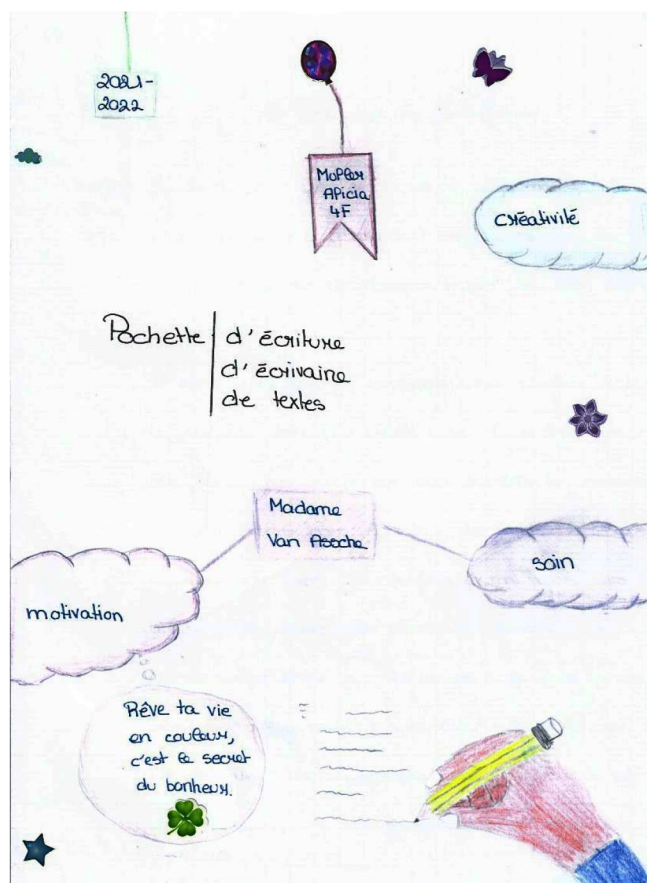 2021-
2022
Muller
Alicia
4F
créativité
Pochette d'écriture
d'écrivaine
de textes
Madame
Van Assche
soin
motivation
Rêve ta vie
en couleur,
c'est le secret
du bonheur.